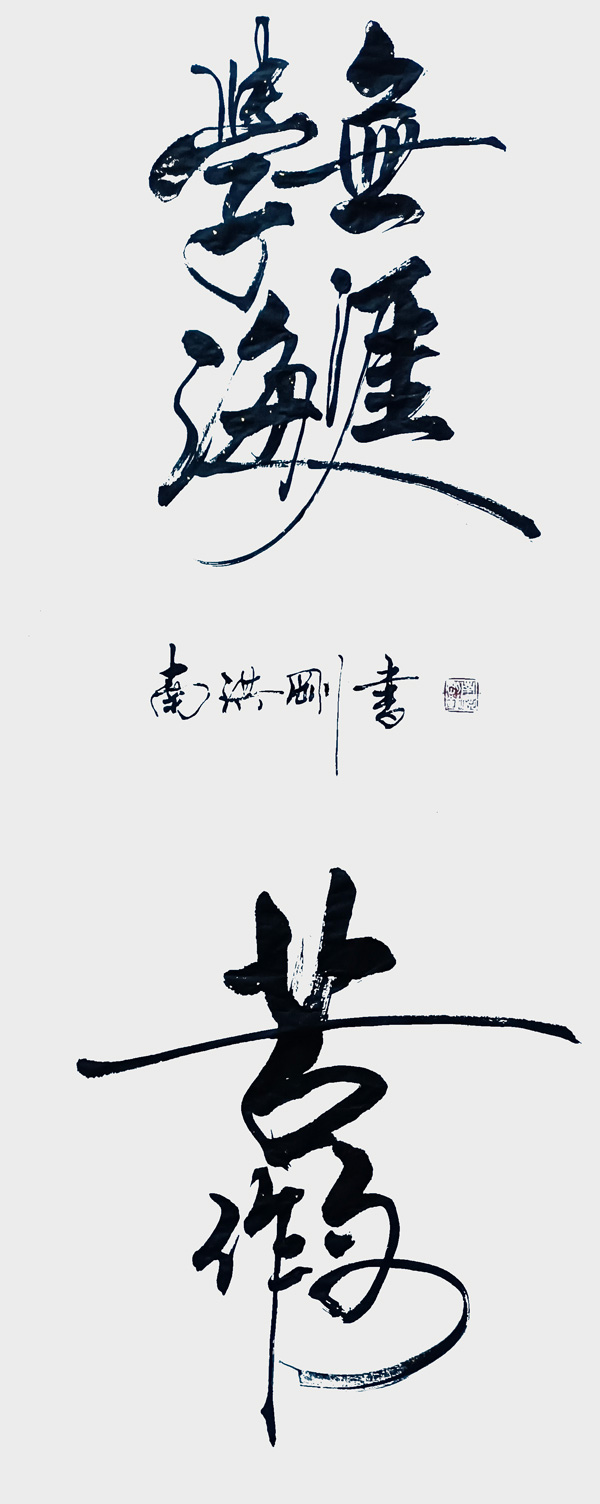 學海
無涯
南洪剛書
苦
作舟